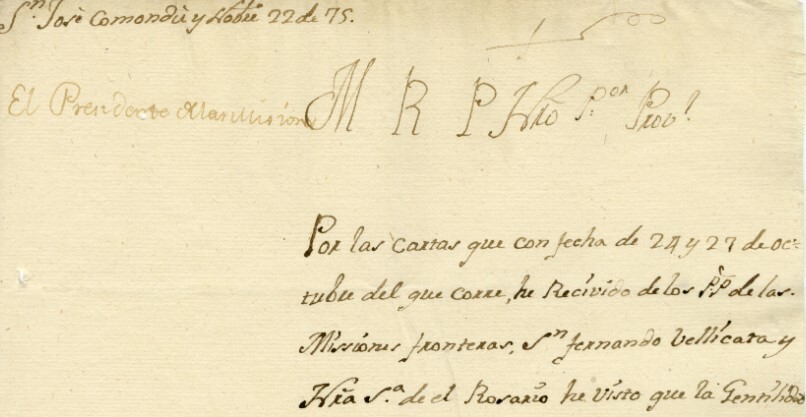 Sn. Josè Comondù y Nobre 22 de 75.
El Presidente de las Misiones
M R P Nro Por Provl.
Por las cartas que con fecha de 24 y 27 de oc=
tubre del que corre, he Recivido de los PPs de las
Missiones fronteras, Sn fernando Vellicata y
Nra Sa. de el Rosario he visto que la Gentilidad